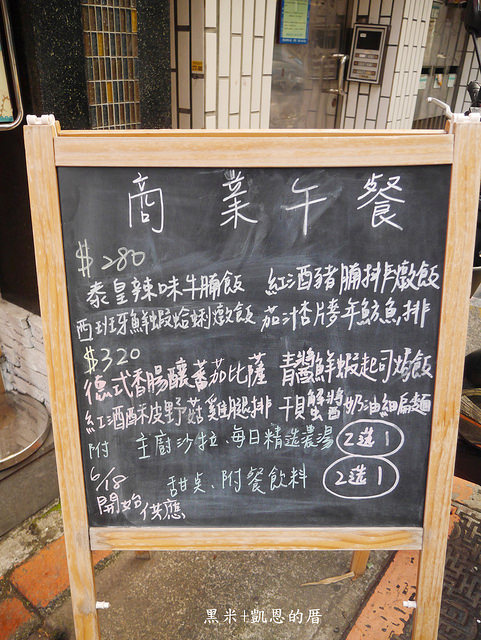 商業午餐
$280
泰皇辣味牛腩飯 紅酒豬腩排燉飯
西班牙鮮蝦蛤蜊燉飯 茄汁杏片麥年魴魚排
$320
德式香腸釀蕃茄比薩 青醬鮮蝦起司焗飯
紅酒酥皮野菇雞腿排 干貝蟹醬奶油細扁麵
附 主廚沙拉、每日精选濃湯 2選1
6/18 甜桌、附餐飲料 2選1
開始供應
黑米+凱恩的厝